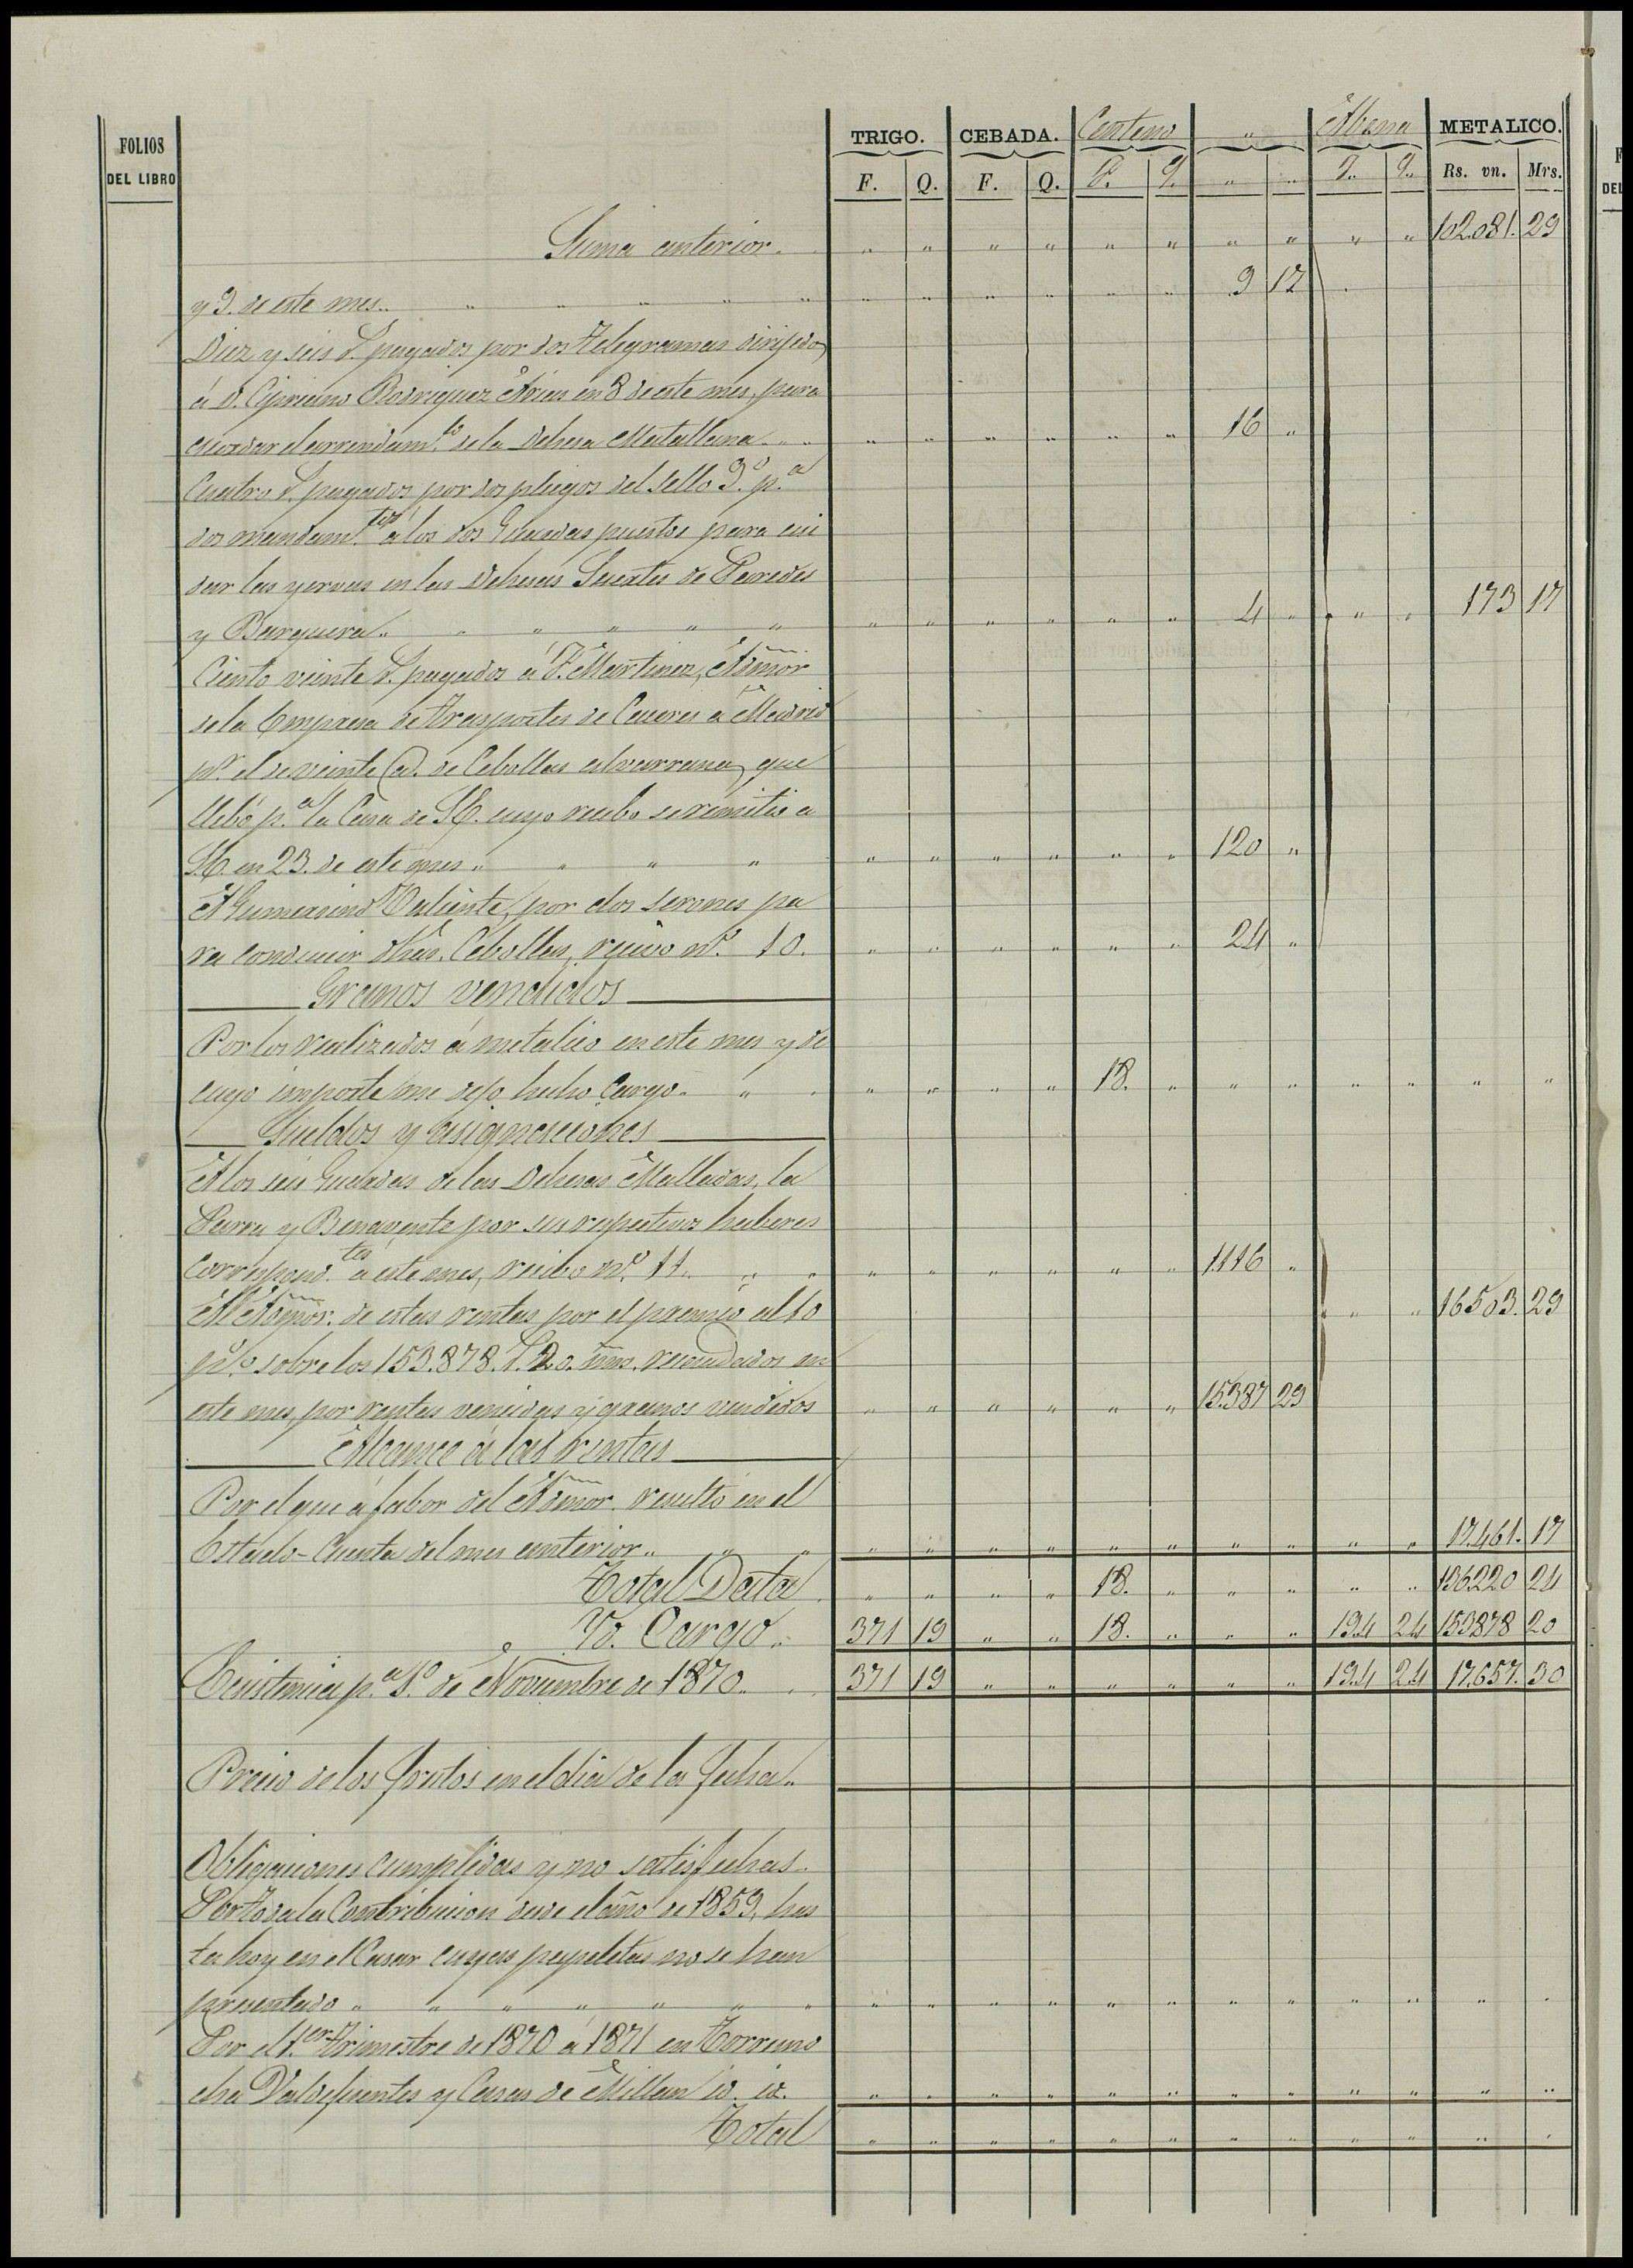 FOLIOS DEL LIBRO TRIGO. CEBADA. Centeno " Abena METALICO.
F. Q. F. Q. F. Q. " " F. Q. Rs. vn. Mrs.
Suma anterior. " " " " " " " " " " 102.081. 29
y 9. de este mes.. " " " " " " 9 17
Diez y seis r. pagados por dos telegramas dirijidos
á D. Cipriano Rodriguez Arias en 8 de este mes, para
acordar el arrendam.to de la Dehesa Matallana " " " " " " 16 "
Cuatro r. pagados por dos pliegos del sello 9.º p.a
dos mandam.tos á los dos Guardas puestos para cui
dar las yervas en las Dehesas Suertes de Paredes
y Barquera.. " " " " " " 4 " " " 173 17
Ciento veinte r. pagados á F. Martinez, Admor
de la Empresa de Trasportes de Caceres á Madrid
pr. el de veinte @. de Cebollas albarrana, que
llebó p.a la Casa de S.E. cuyo recibo se remitió a
S.E. en 23. de este mes " " " " " " 120 "
A Gumersindo Valiente, por dos serones pa
ra conducir dhas. Cebollas, recivo n.º 10. " " " " " " 24 "
Granos vendidos
Por los realizados á metalico en este mes y de
cuyo importe me dejo hecho cargo. " " " " 18. " " " " " " "
Sueldos y asignaciones
A los seis Guardas de las Dehesas Malladas, la
Parra y Benavente por sus respectivos haberes
correspond.tes á este mes, recibo n.º 11. " " " " " " 1.116 "
Al Admor. de estas rentas por el premio al 10 " " 16503. 29
p% sobre los 153.878. r. 20. mrs. recaudados en
este mes, por rentas vencidas y granos vendidos " " " " " " 15.387 29
Alcance á las rentas
Por el que á fabor del Admor. resultó en el
Estado-Cuenta del mes anterior.. " " " " " " " " " " 17.461. 17
Total Data " " " " 18. " " " " " 136.220 24
Yd. Cargo. 371 19 " " 18. " " " 194 24 153878 20
Existencia p.a 1.º de Noviembre de 1870. 371 19 " " " " " " 194 24 17.657. 30
Precio de los frutos en el dia de la fecha..
Obligaciones cumplidas y no satisfechas.
Por toda la Contribucion desde el año de 1859, has
ta hoy en el Casar cuyas papeletas no se han
presentado " " " " " " " " " " " "
Por el 1.er trimestre de 1870 á 1871 en Torremo
cha Valdefuentes y Casas de Millan id. id. " " " " " " " " " " " "
Total " " " " " " " " " " " "